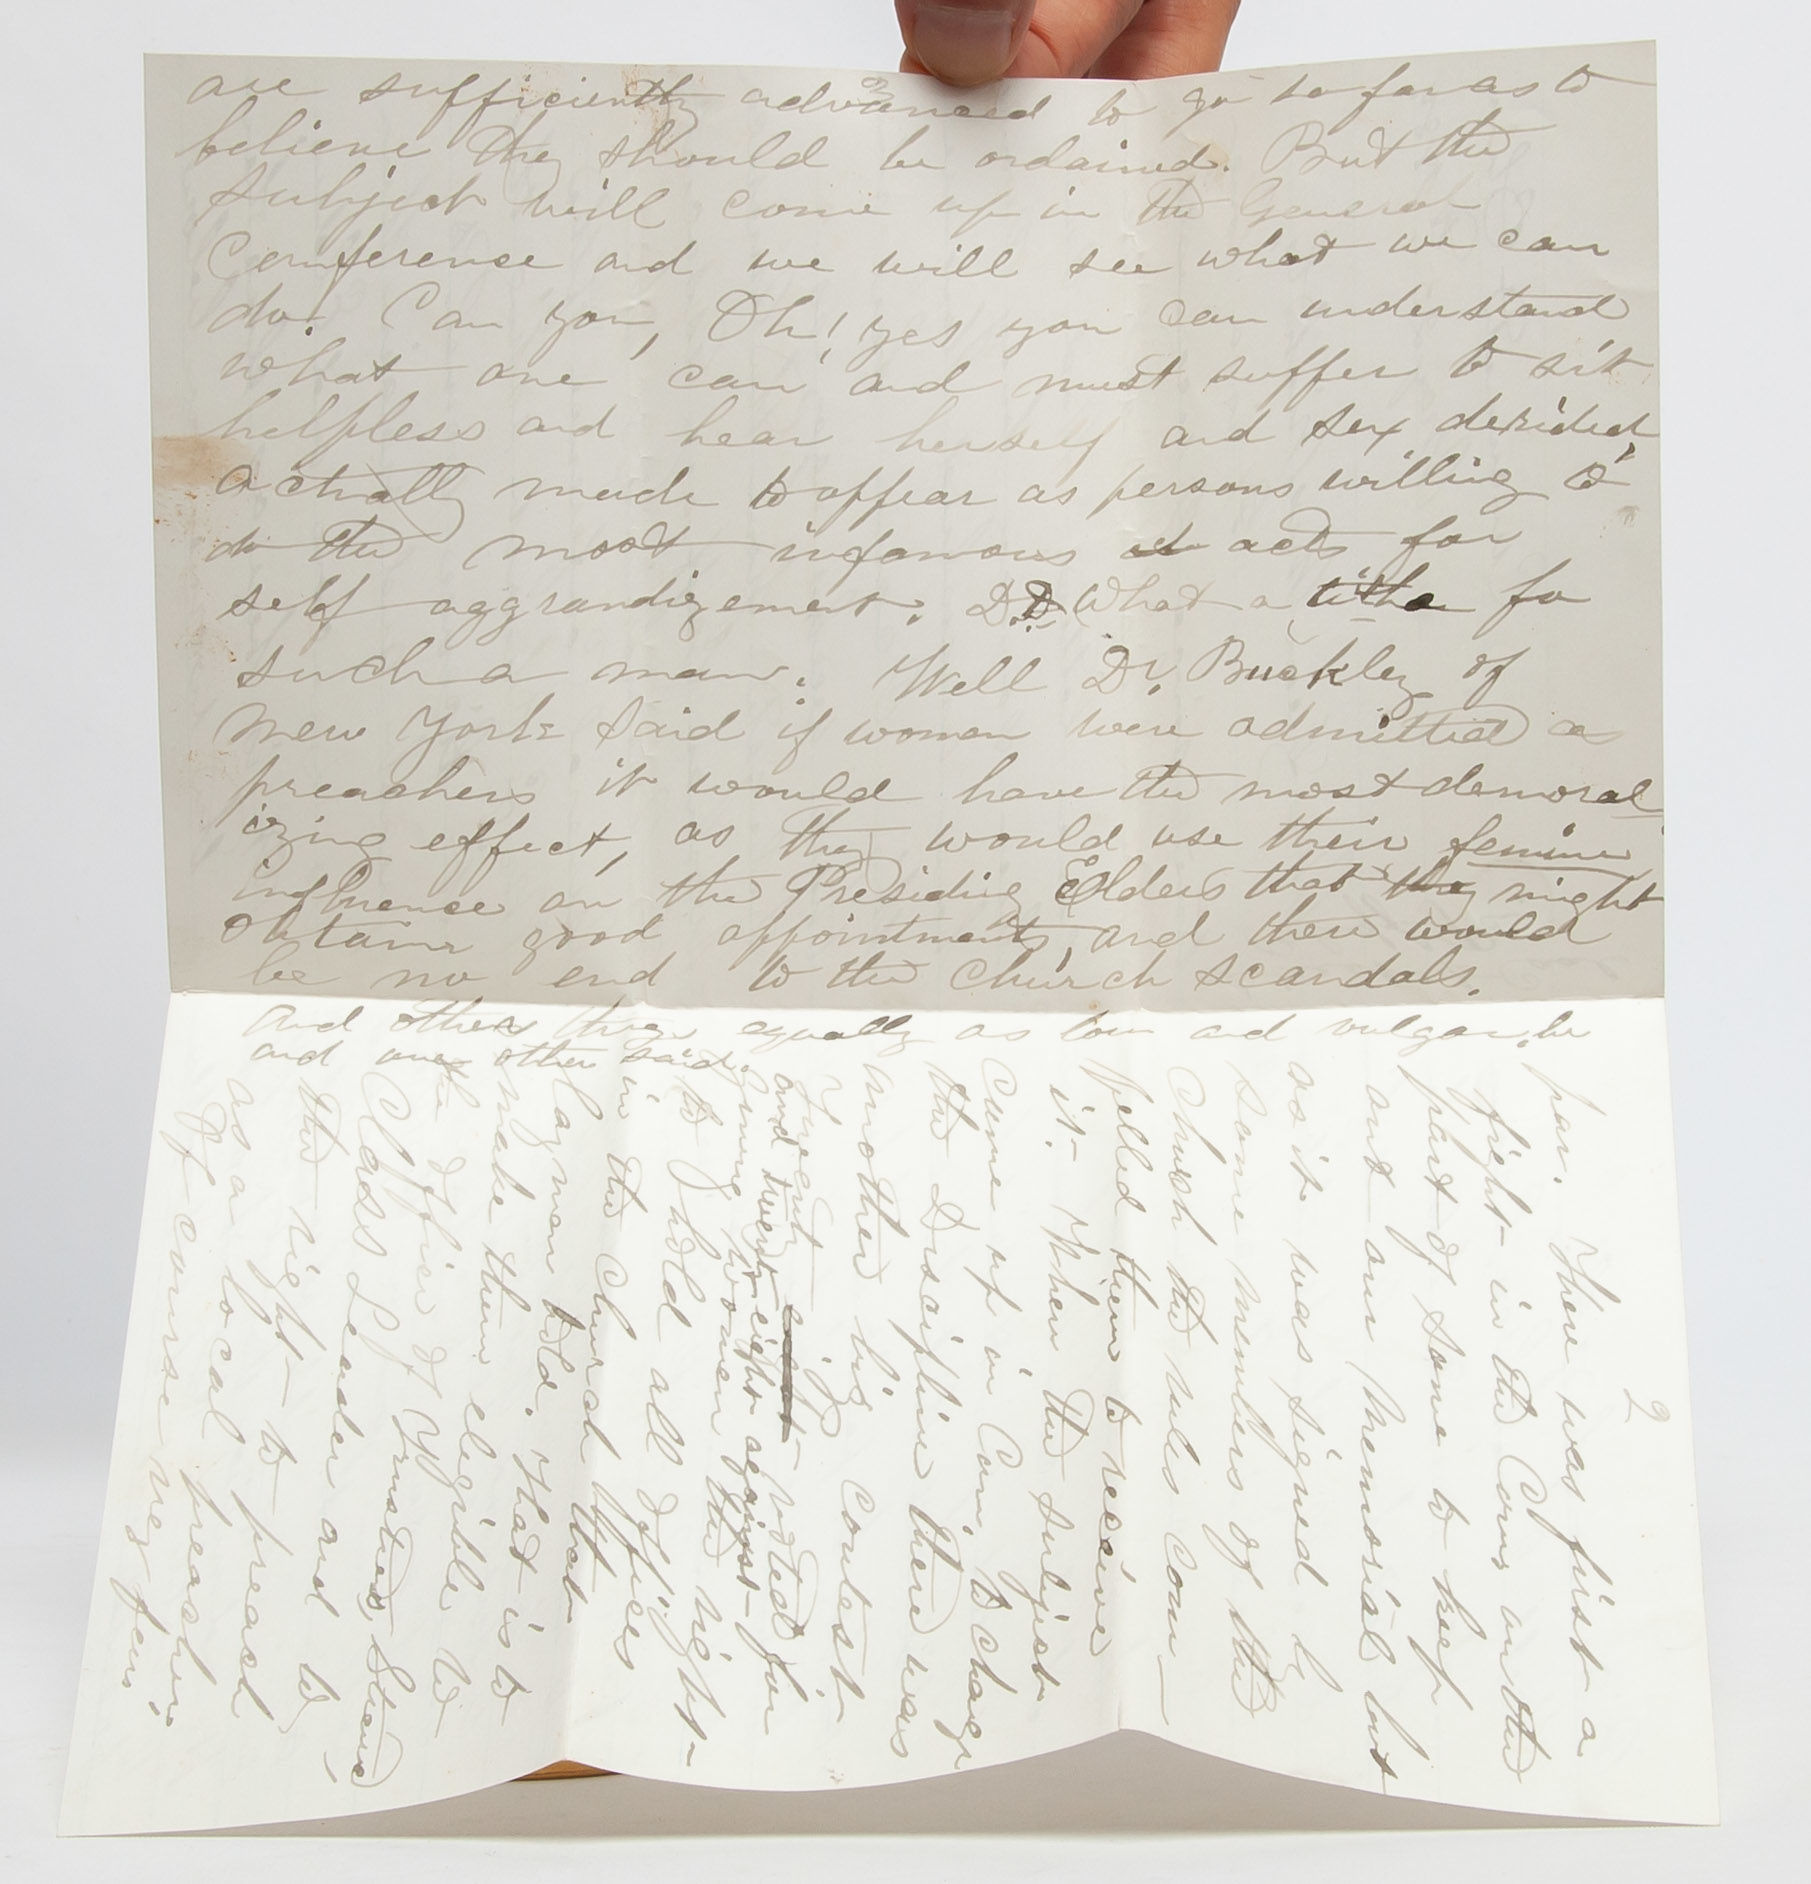 are sufficiently advanced to go so far as to
believe they should be ordained. But the
subject will come up in the General
Conference and we will see what we can
do! Can you, Oh! yes you can understand
what one can and must suffer to sit
helpless and hear herself and sex derided,
actually made to appear as persons willing to
do the most infamous acts for
self aggrandizement. D.D. What a title for
such a man. Well Dr. Buckley of
New York said if women were admitted as
preachers it would have the most demoral
izing effect, as they would use their feminine
influence on the Presiding Elders that they might
obtain good appointments, and there would
be no end to the church scandals.
And other things equally as low and vulgar, he
and one other said.
2
par. There was first a
fight in the Conf on the
part of some to keep
out our Memorial but
as it was signed by
some members of the
Church the rules com-
pelled them to receive
it. When the subject
came up in Conf. to change
the Discipline there was
another big contest
Twenty eight voted for
and twenty eight against
giving women the right
to hold all offices
in the Church that
laymen hold. That is to
make them eligible to
the office of Trustees, Steward
Class Leader and to
the right to preach
as a local preacher.
Of course very few